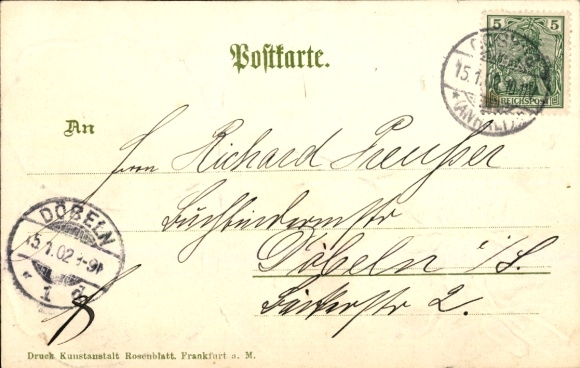 5 5
REICHSPOST
15.1.
(ANHALT)
Postkarte.
An
Herrn Richard Preusser
Buchbindermstr
Döbeln i/S.
Bäckerstr 2.
DÖBELN
15.1.02. 8-9N
* 1 d
Druck Kunstanstalt Rosenblatt, Frankfurt a. M.